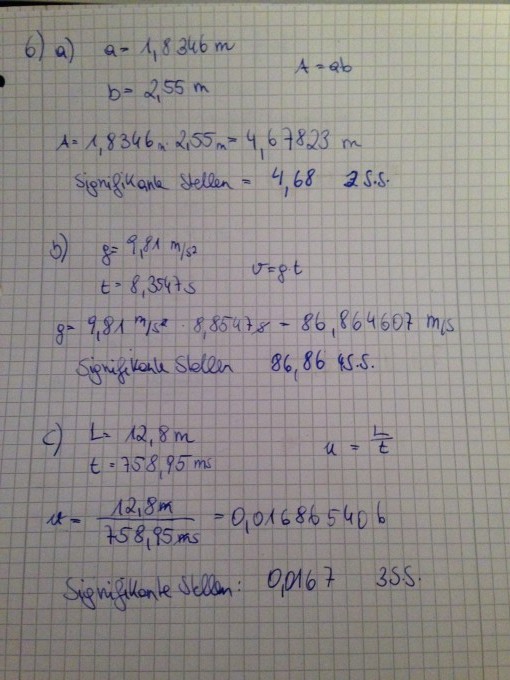 6) a) a = 1,8346 m A = ab
b = 2,55 m
A = 1,8346m · 2,55m = 4,67823 m
Signifikante Stellen = 4,68 2 S.S.
b) g = 9,81 m/s²
t = 8,3547s v = g·t
g = 9,81 m/s² · 8,8547s = 86,864607 m/s
Signifikante Stellen 86,86 4S.S.
c) L = 12,8 m u = L/t
t = 758,95 ms
u = 12,8m / 758,95ms = 0,016865406
Signifikante Stellen: 0,0167 3S.S.